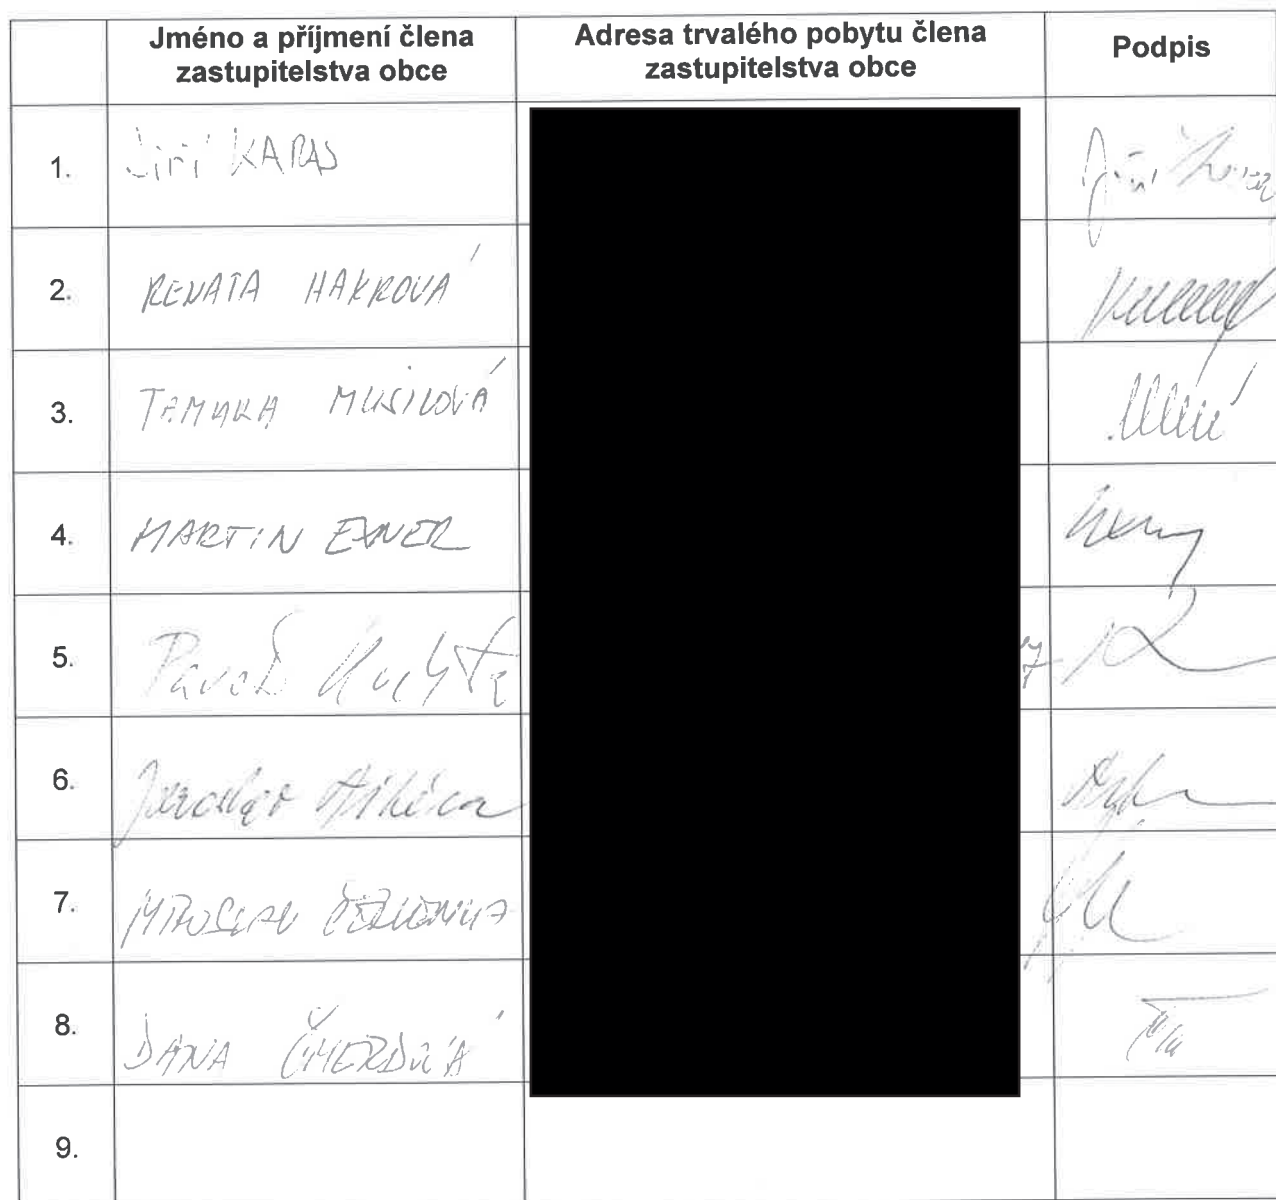 Jméno a příjmení člena
zastupitelstva obce
Adresa trvalého pobytu člena
zastupitelstva obce
Podpis
1. Jiří KARAS
2. RENATA HAKROVÁ
3. MUSILOVÁ
4. MARTIN EXNER
5. Pavel
6. Jaroslav
7. MIROSLAV ČERVENKA
8. DANA
9.